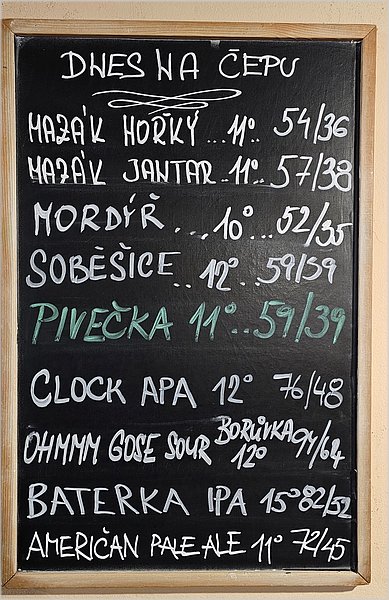 DNES NA ČEPU
MAZÁK HOŘKÝ ... 11° 54/36
MAZÁK JANTAR .. 11° .. 57/38
MORDÝŘ .... 10° ... 52/35
SOBĚŠICE .. 12° .. 59/39
PIVEČKA 11° .. 59/39
CLOCK APA 12° 76/48
OHMMM GOSE SOUR BORŮVKA 12° 94/64
BATERKA IPA 15° 82/52
AMERIČAN PALE ALE 11° 72/45